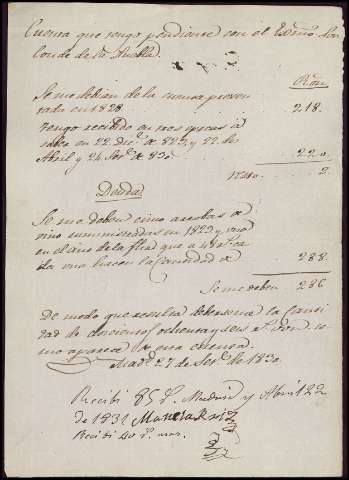 Cuenta que tengo pendiente con el Exmo. Sor.
Conde de la Puebla.
Rvon.
Se me debian de la cuenta presen
tada en 1828 218.
Tengo recibido en tres epocas á
saber en 22 Dic. de 829, y 22 de
Abril y 24 Set.e de 830 220.
2
Deuda
Se me deben cinco arrobas de
vino suministradas en 1829 y una
en el dia de la fha que á 48 rs. ca
da una hacen la cantidad de 288.
Se me deben 286
De modo que resulta deberseme la canti
dad de doscientos ochenta y seis rs. von. co
mo aparece de esta cuenta.
Mad.d 27 de Set.e de 1830.
Recibi 85 rs. Madrid y Abril 22
de 1831 Manuel Ruiz
Recibi 40 rs. mas.